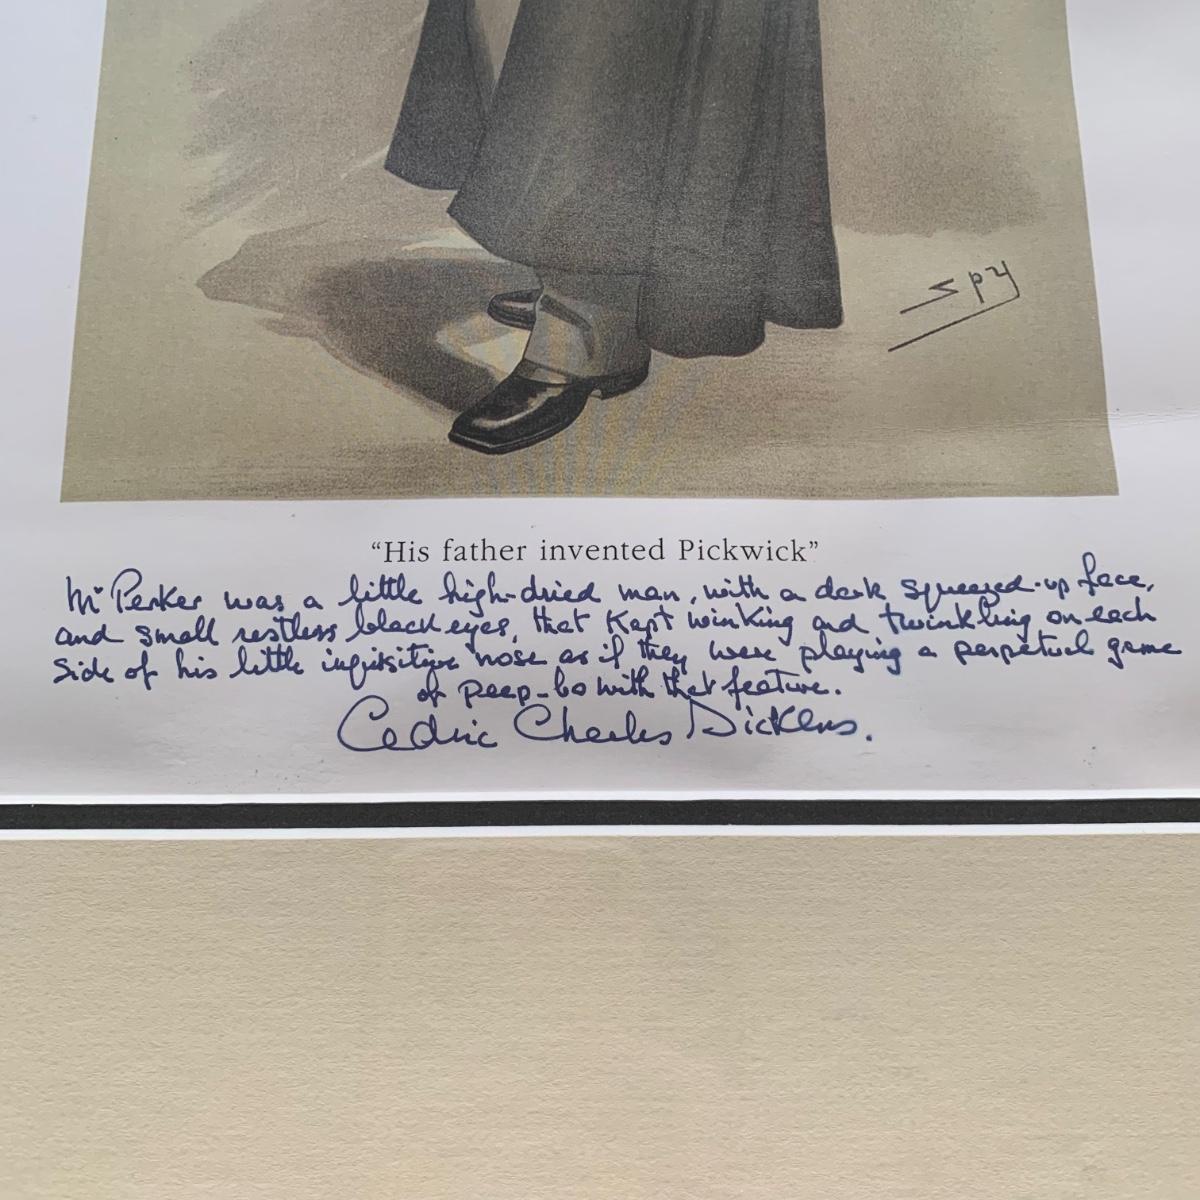 Spy
“His father invented Pickwick”
Mr Perker was a little high-dried man, with a dark squeezed-up face,
and small restless black eyes, that kept winking and twinkling on each
side of his little inquisitive nose as if they were playing a perpetual game
of peep-bo with that feature.
Cedric Charles Dickens.